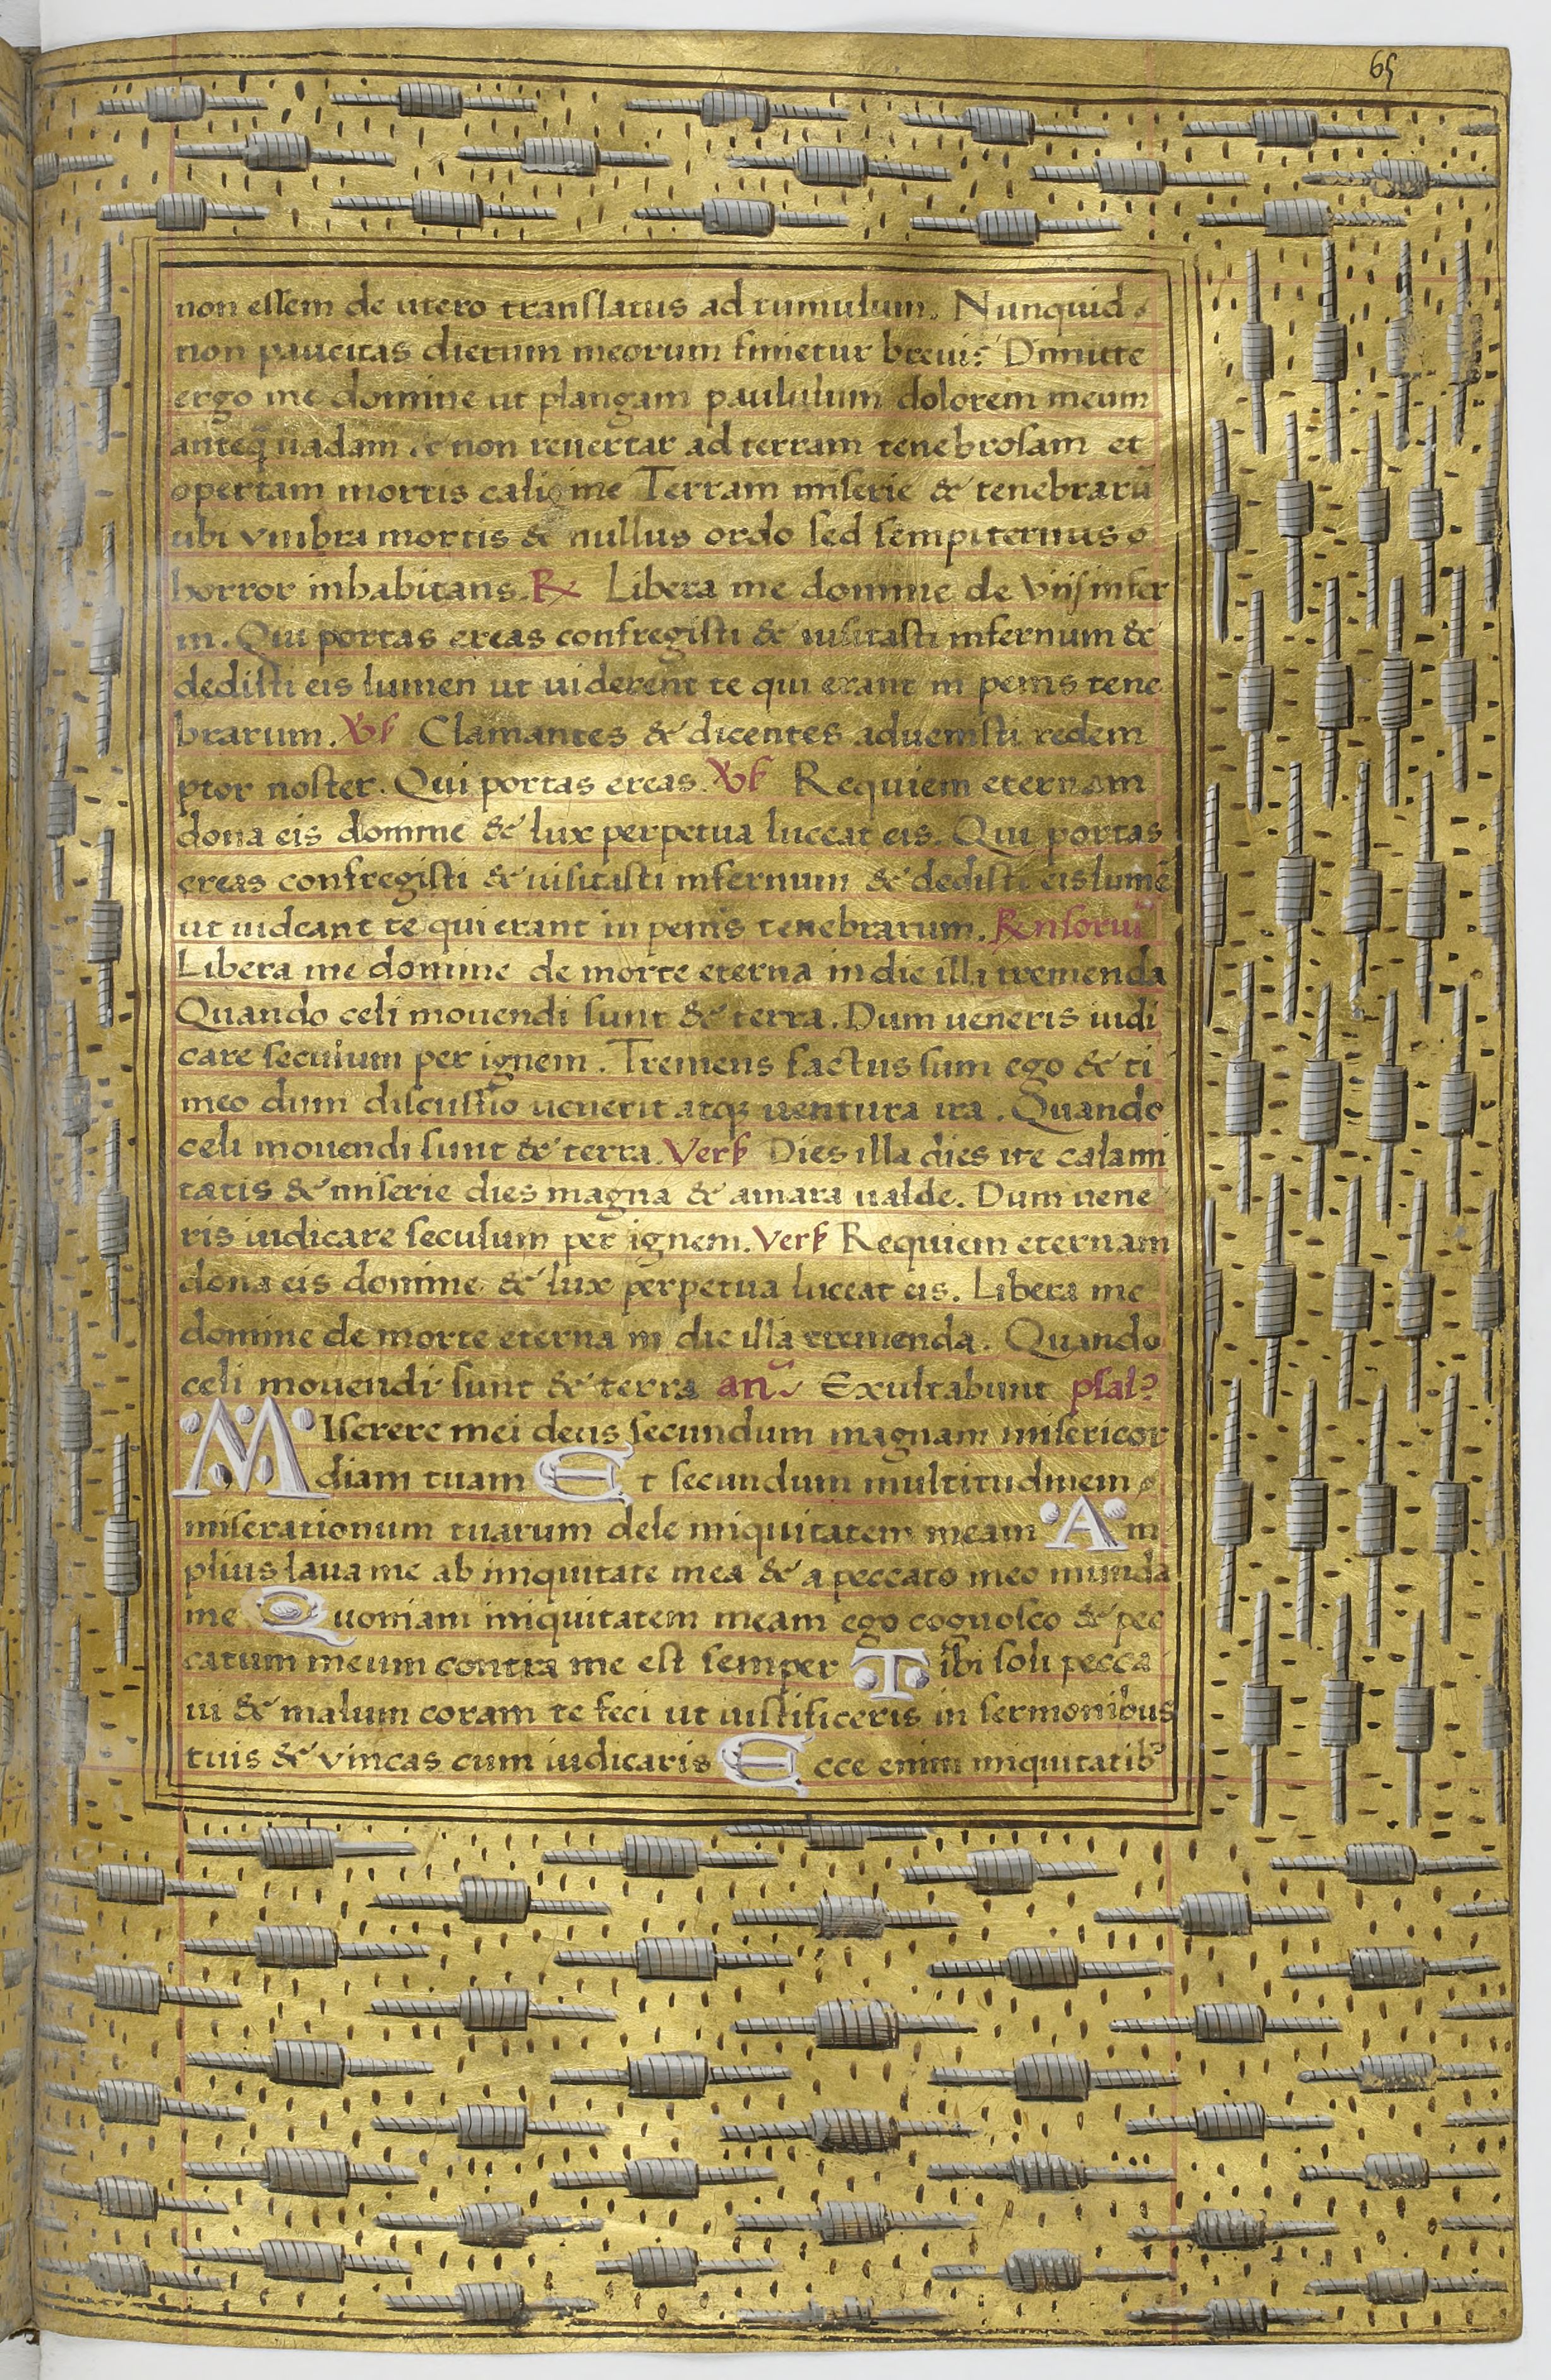 65
non essem de utero translatus ad tumulum. Nunquid
non paucitas dierum meorum finietur breui? Dimitte
ergo me domine ut plangam paululum dolorem meum
anteq̃ uadam & non reuertar ad terram tenebrosam et
opertam mortis caligine Terram miserie & tenebrarũ
ubi vmbra mortis & nullus ordo sed sempiternus
horror inhabitans. R Libera me domine de viis infer
ni. Qui portas ereas confregisti & uisitasti infernum &
dedisti eis lumen ut uiderent te qui erant in penis tene
brarum. Vs Clamantes & dicentes aduenisti redem
ptor noster. Qui portas ereas. Vs Requiem eternam
dona eis domine & lux perpetua luceat eis. Qui portas
ereas confregisti & uisitasti infernum & dedisti eis lumẽ
ut uideant te qui erant in penis tenebrarum. Rnsoriũ
Libera me domine de morte eterna in die illa tremenda
Quando celi mouendi sunt & terra. Dum ueneris iudi
care seculum per ignem. Tremens factus sum ego & ti
meo dum discussio uenerit atq; uentura ira. Quando
celi mouendi sunt & terra. Vers Dies illa dies ire calami
tatis & miserie dies magna & amara ualde. Dum uene
ris iudicare seculum per ignem. Vers Requiem eternam
dona eis domine & lux perpetua luceat eis. Libera me
domine de morte eterna in die illa tremenda. Quando
celi mouendi sunt & terra añ Exultabunt psal?
MIserere mei deus secundum magnam misericor
diam tuam Et secundum multitudinem
miserationum tuarum dele iniquitatem meam Am
plius laua me ab iniquitate mea & a peccato meo munda
me Quoniam iniquitatem meam ego cognosco & pec
catum meum contra me est semper Tibi soli pecca
ui & malum coram te feci ut iustificeris in sermonibus
tuis & vincas cum iudicaris Ecce enim iniquitatib⁹